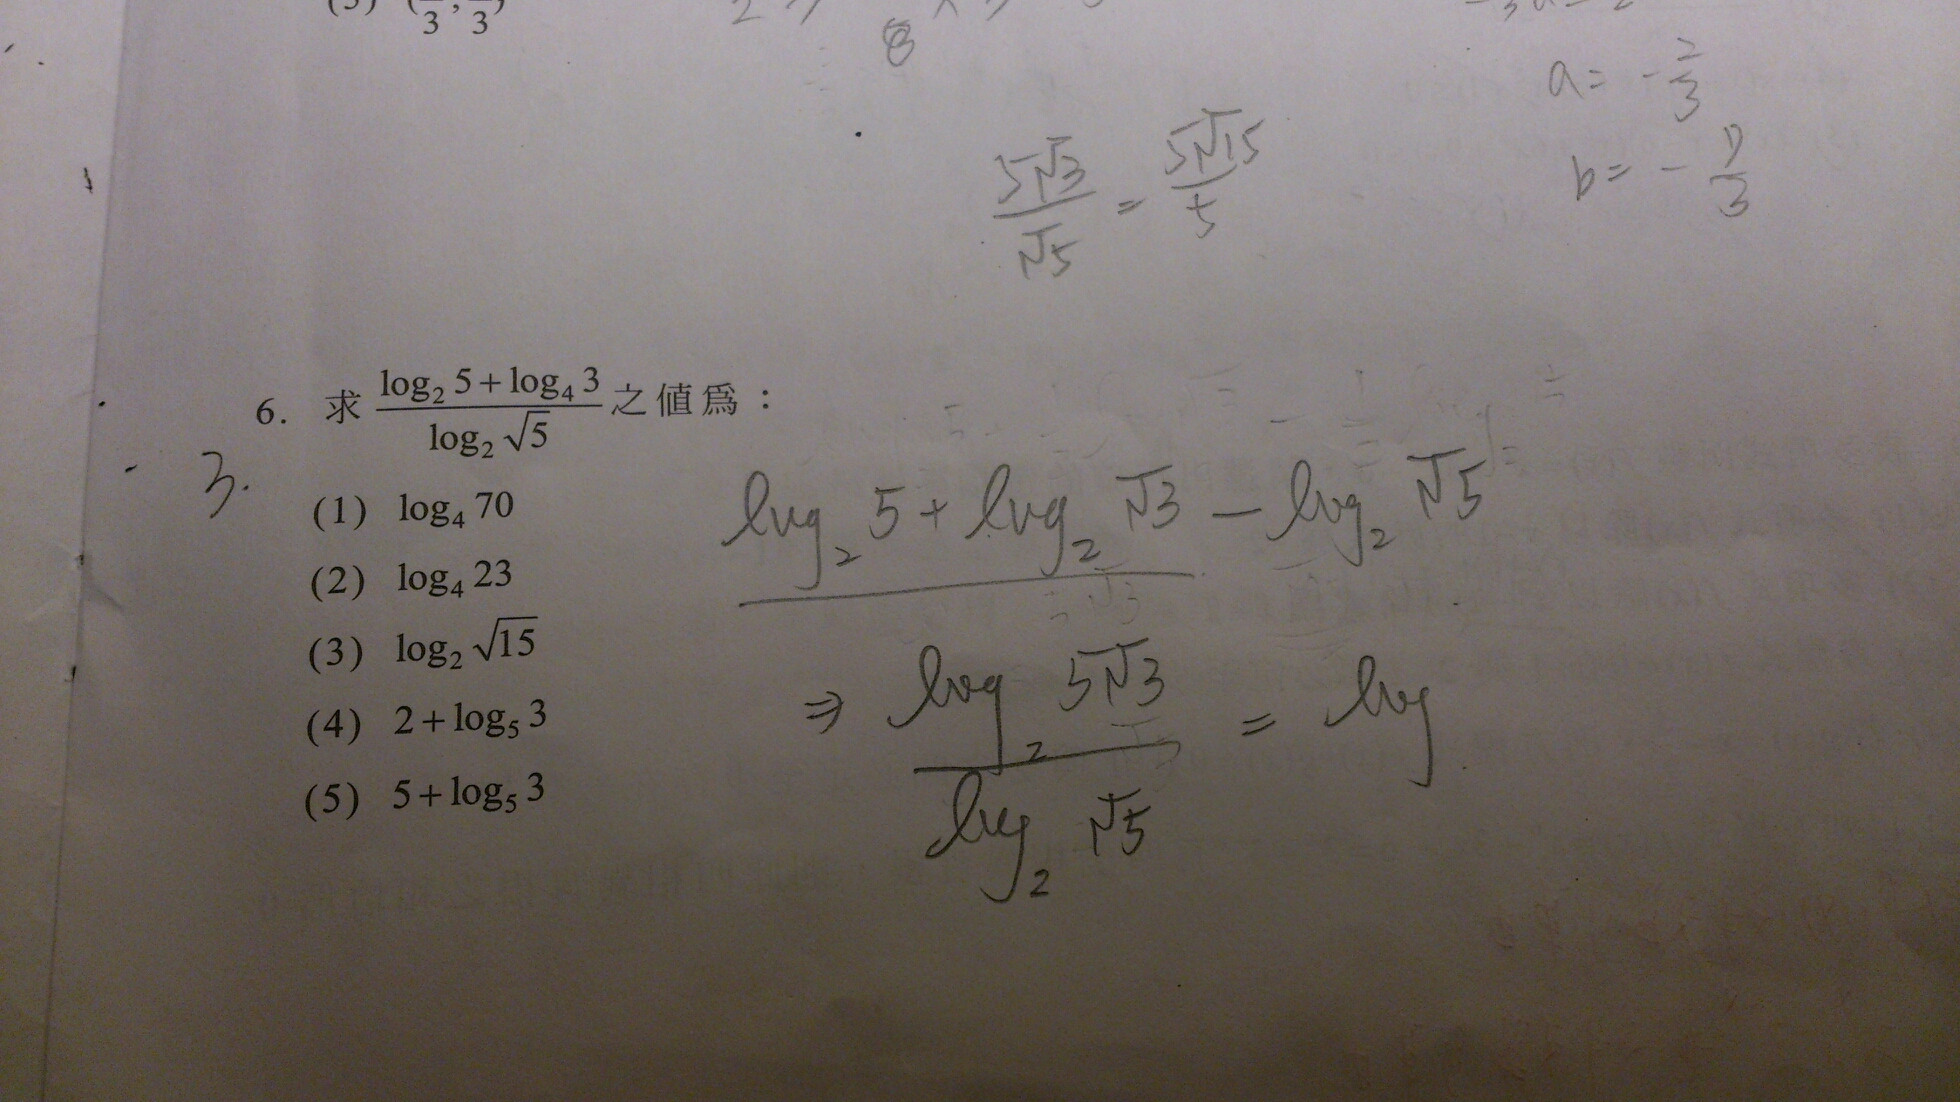 8
a = -2/3
5√3/√5 = 5√15/5
b = -
6. 求 (log₂ 5 + log₄ 3)/(log₂ √5) 之值為：
3.
(1) log₄ 70
(2) log₄ 23
(3) log₂ √15
(4) 2 + log₅ 3
(5) 5 + log₅ 3
log₂ 5 + log₂ √3 - log₂ √5
⇒ (log₂ 5√3)/(log₂ √5) = log